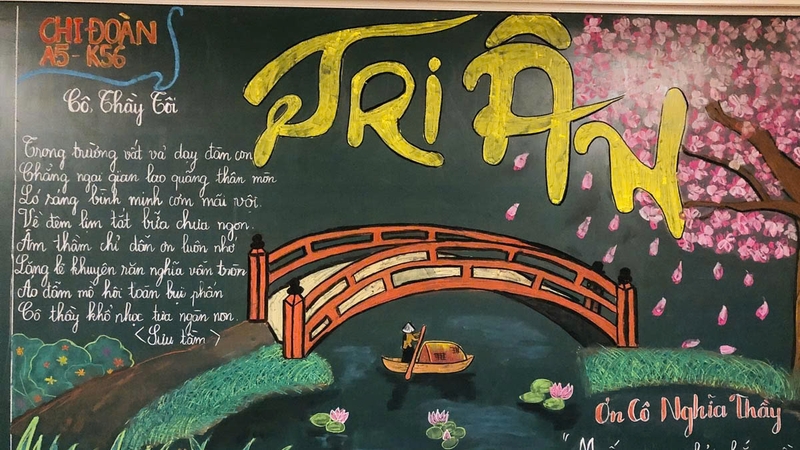 CHI ĐOÀN
A5 - K56
Cô, Thầy Tôi
Trong trường vất vả dạy đàn con
Chẳng ngại gian lao quãng thân mòn
Ló sang bình minh cơm mái vội.
Về đêm lim tắt bữa chưa ngon.
Âm thầm chỉ dẫn ơn luôn nhớ
Lặng lẽ khuyên răn nghĩa vẫn tròn
Áo đẫm mồ hôi toàn bụi phấn
Cô thầy khổ nhọc tựa ngàn non.
<Sưu tầm>
TRI ÂN
Ơn Cô Nghĩa Thầy